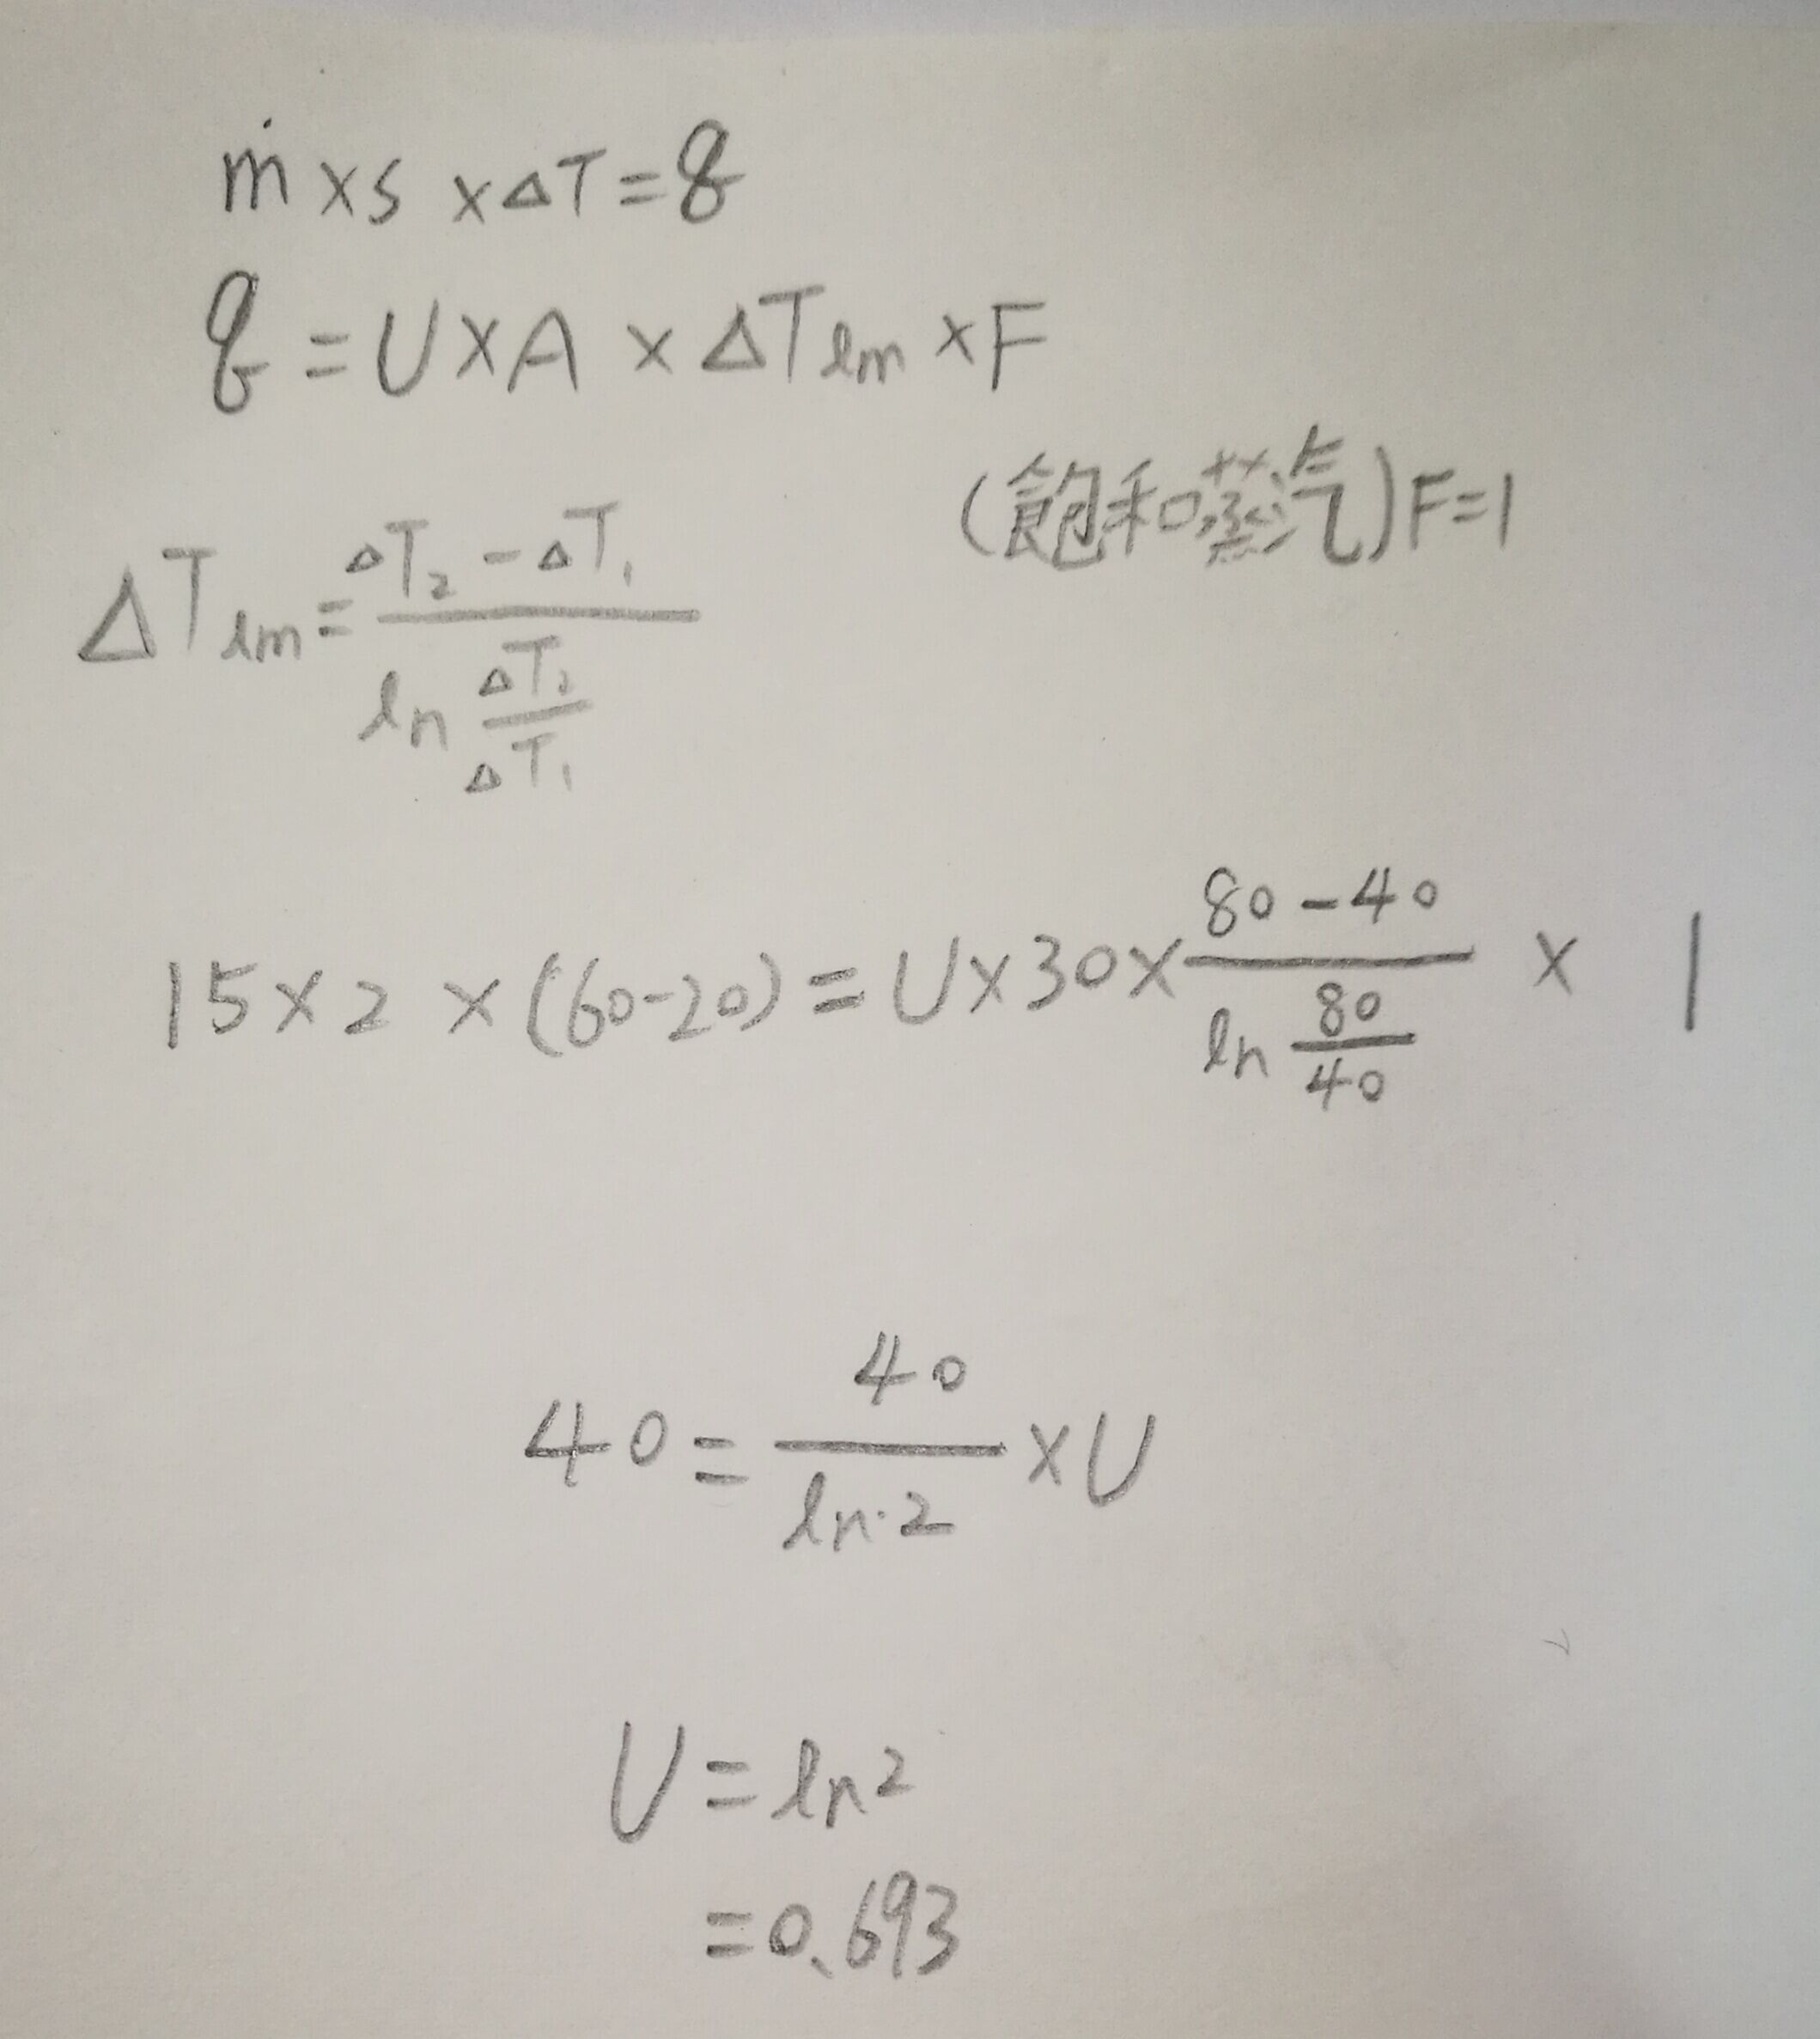 ṁ×s×ΔT=q
q=U×A×ΔTlm×F
(飽和蒸汽)F=1
ΔTlm=(ΔT₂-ΔT₁)/(ln ΔT₂/ΔT₁)
15×2×(60-20)=U×30×(80-40)/(ln 80/40)×1
40=40/(ln 2)×U
U=ln2
=0.693